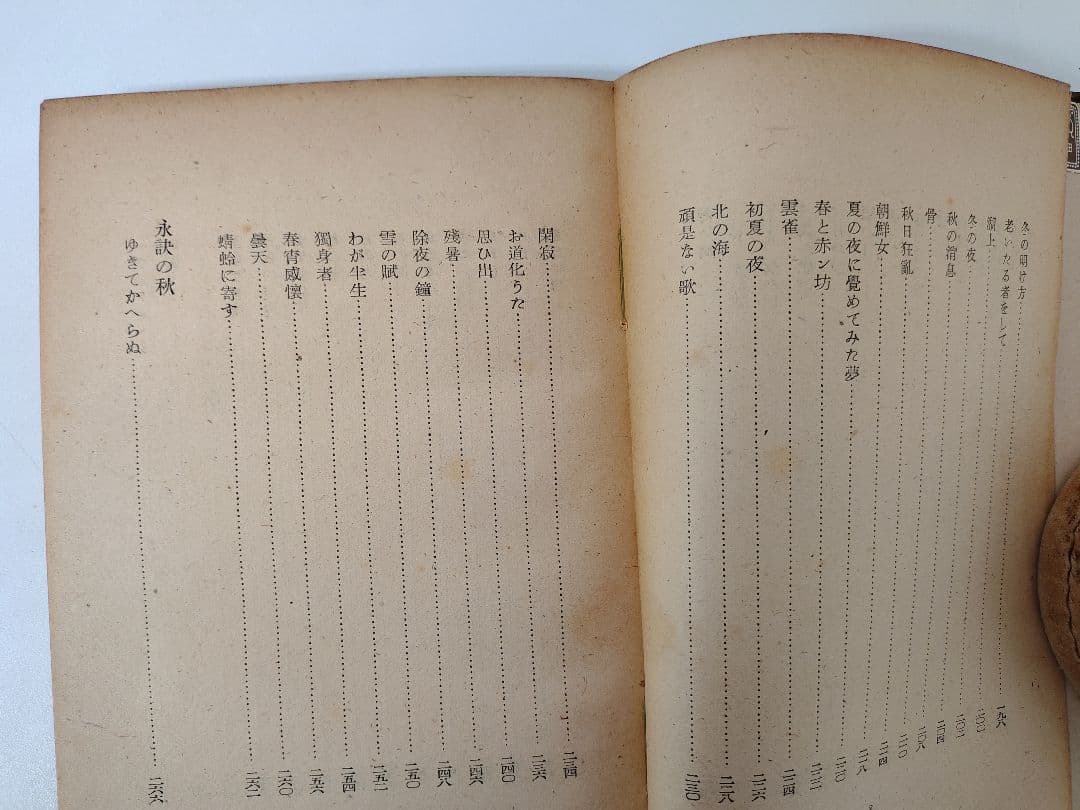 冬の明け方……一九八
老いたる者をして……二〇〇
湖上……二〇二
冬の夜……二〇四
秋の消息……二〇八
骨……二一〇
秋日狂亂……二一四
朝鮮女……二一八
夏の夜に覺めてみた夢……二二〇
春と赤ン坊……二二二
雲雀……二二四
初夏の夜……二二六
北の海……二二八
頑是ない歌……二三〇
閑寂……二三四
お道化うた……二三六
思ひ出……二四〇
殘暑……二四六
除夜の鐘……二四八
雪の賦……二五〇
わが半生……二五二
獨身者……二五四
春宵感懷……二五六
曇天……二六〇
蜻蛉に寄す……二六二
永訣の秋
ゆきてかへらぬ……二六六